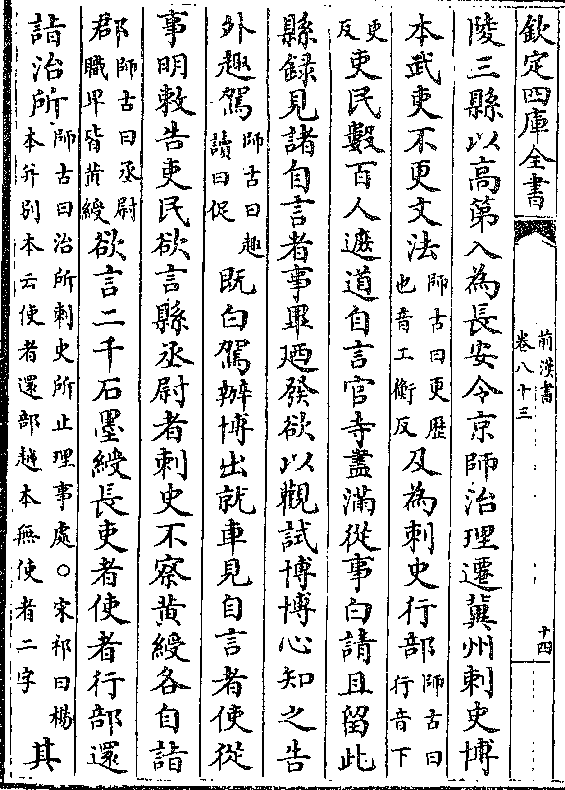 欽定四庫全書
前漢書
卷八十三
十四
陵三縣以高第入為長安令京師治理遷冀州刺史博
本武吏不更文法師古曰更歷也音工衡反及為刺史行部師古曰行音下
更反吏民數百人遮道自言官寺盡滿從事白請且留此
縣録見諸自言者事畢廼發欲以觀試博博心知之告
外趣駕師古曰趣讀曰促既白駕辦博出就車見自言者使從
事明敕告吏民欲言縣丞尉者刺史不察黃綬各自詣
郡師古曰丞尉職卑皆黃綬欲言二千石墨綬長吏者使者行部還
詣治所師古曰治所刺史所止理事處○宋祁曰楊本并別本云使者還部越本無使者二字其